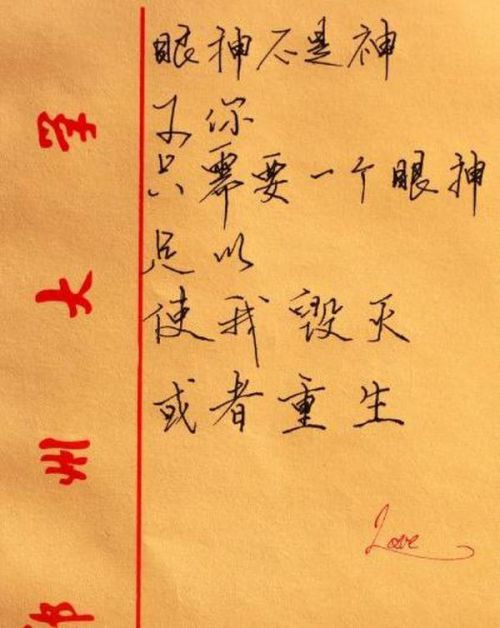 眼神不是神
你
只需要一个眼神
足以
使我毁灭
或者重生
Love
郑州大学